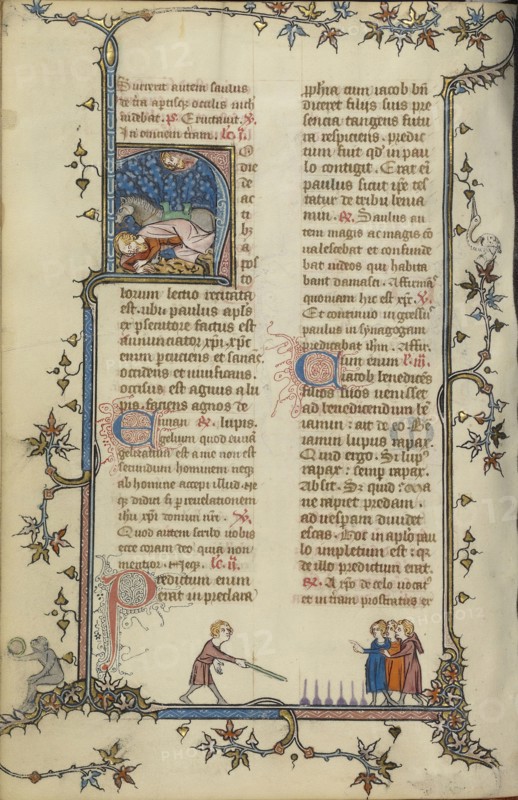 Surrexit autem saulus
de tra aptisqz oculis nich
uidebat. ps. Eructauit. V.
In omnem tram. lc. i.
O
die
de
ac
ti
bz
a
pos
to
lorum lectio recitata
est. ubi paulus apls
ex psecutore factus est
annunciator xpi. xpc
enim pcuciens et sanas.
occidens et uiuificans.
occisus est agnus a lu
pis. faciens agnos de
lupis.
Euuan
gelium quod euua
gelizatum est a me non est
secundum hominem neqz
ab homine accepi illud. Ne
qz didici sz p reuelationem
ihu xpi domini nri. V.
Quod autem scribo uobis
ecce coram deo quia non
mentior. Neqz. lc. ii.
Predictum enim
erat in preclara
pphia cum iacob bn
diceret filijs suis pre
sencia tangens futu
ra respiciens. predic
tum fuit qd in pau
lo contigit. Erat ei
paulus sicut ipe tes
tatur de tribu benia
min. R. Saulus au
tem magis ac magis co
ualescebat et confunde
bat iudeos qui habita
bant damasci. Affirmas
quoniam hic est xpc. V.
Et continuo ingressus
paulus in synagogam
predicabat ihm. Affir.
Cum enim lc. iii.
iacob benedices
filios suos uenisset
ad benedicendum be
iamin : ait de eo. Be
iamin lupus rapax.
Quid ergo. Si lupus
rapax : semp rapax.
Absit. Sz quid : Ma
ne rapiet predam.
ad uespam diuidet
escas. Hoc in aplo pau
lo impletum est : qz
de illo predictum erat.
R. A xpo de celo uocat
et in tram prostratus ex